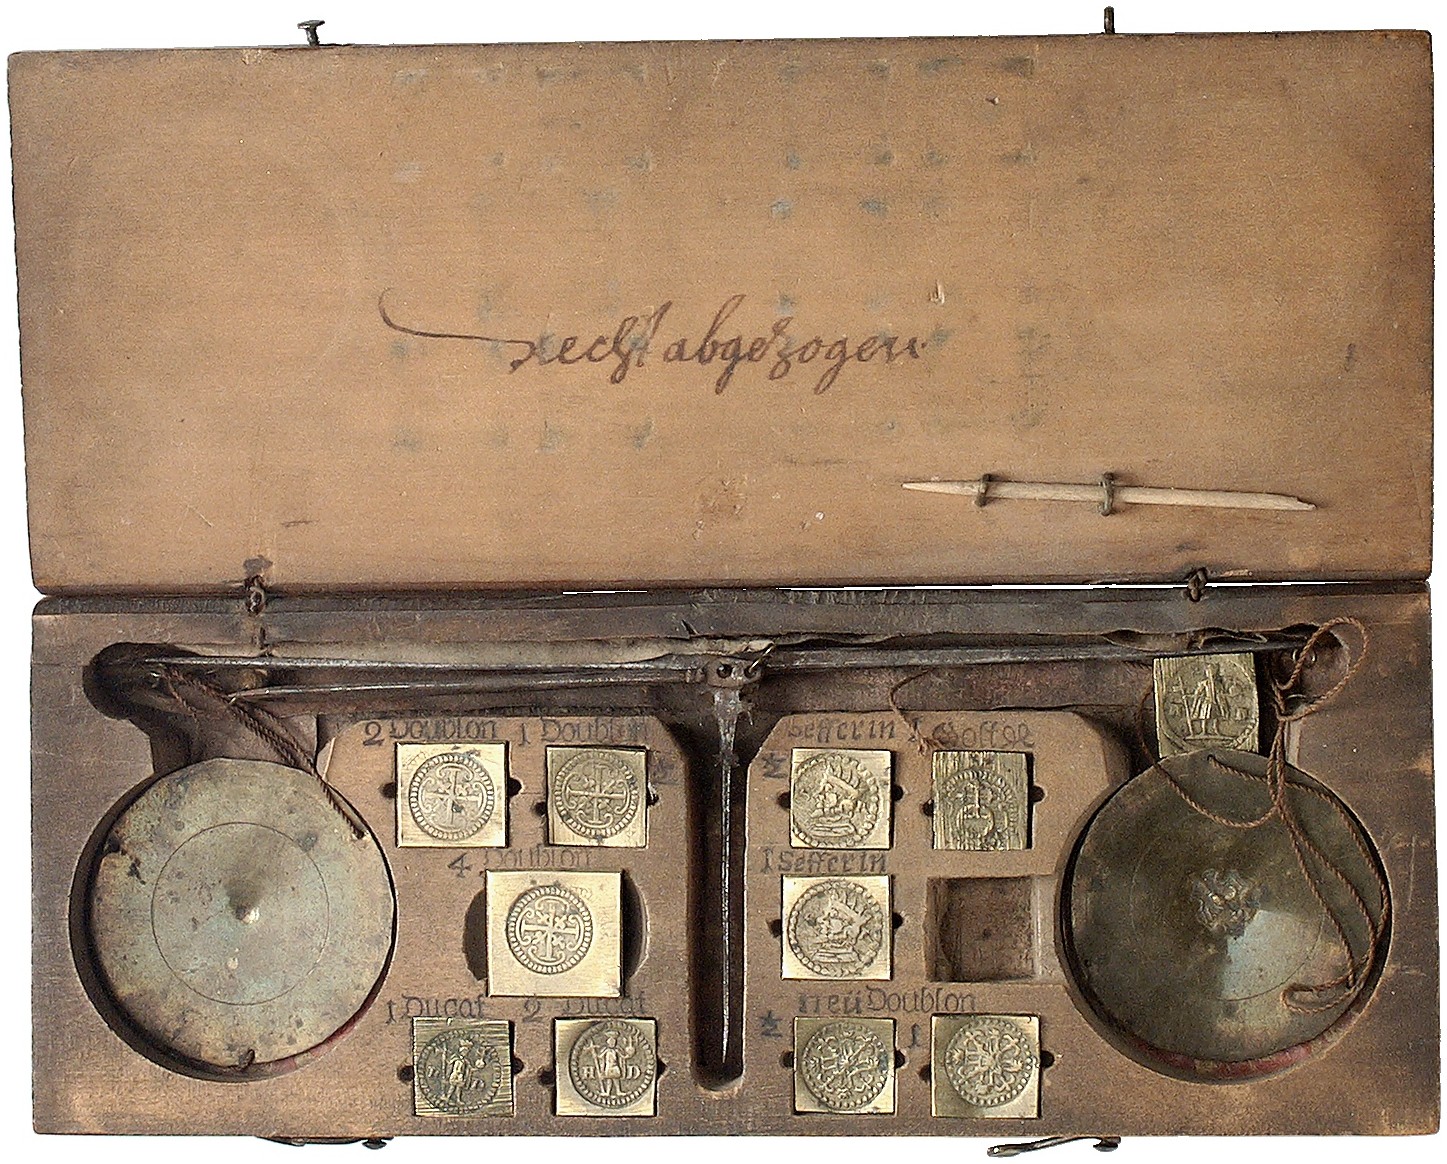 recht abgezogen
2 Doublon 1 Doublon
4 Doublon
1 Ducat 2 Ducat
½ Sefferin 1
1 Sefferin
½ neü Doublon 1
H D
H D